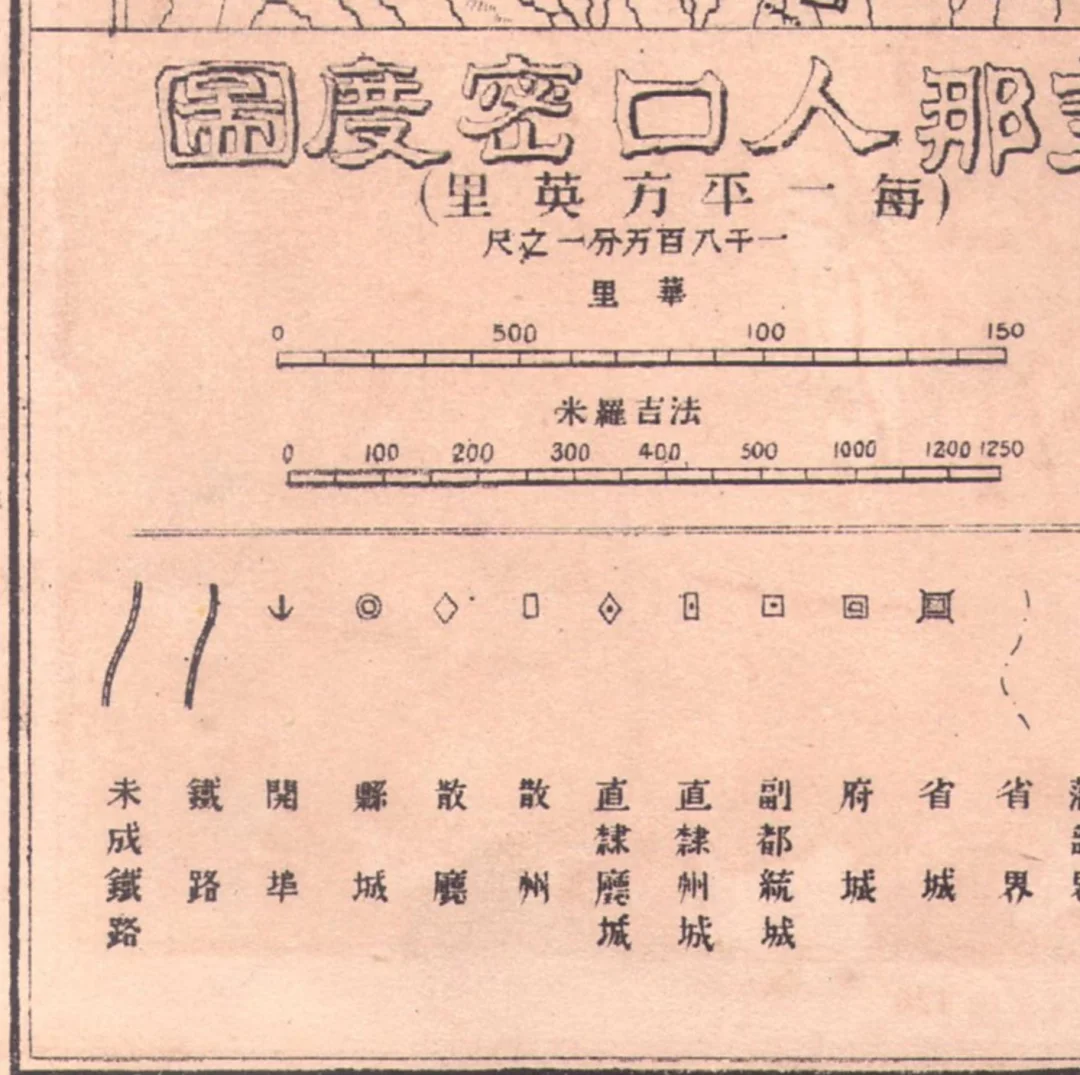 那人口密度圖
(每一平方英里)
一千八百万分一之尺
華里
0 500 100 150
法吉羅米
0 100 200 300 400 500 1000 1200 1250
省界
省城
府城
副都統城
直隸州城
直隸廳城
散州
散廳
縣城
開埠
鐵路
未成鐵路